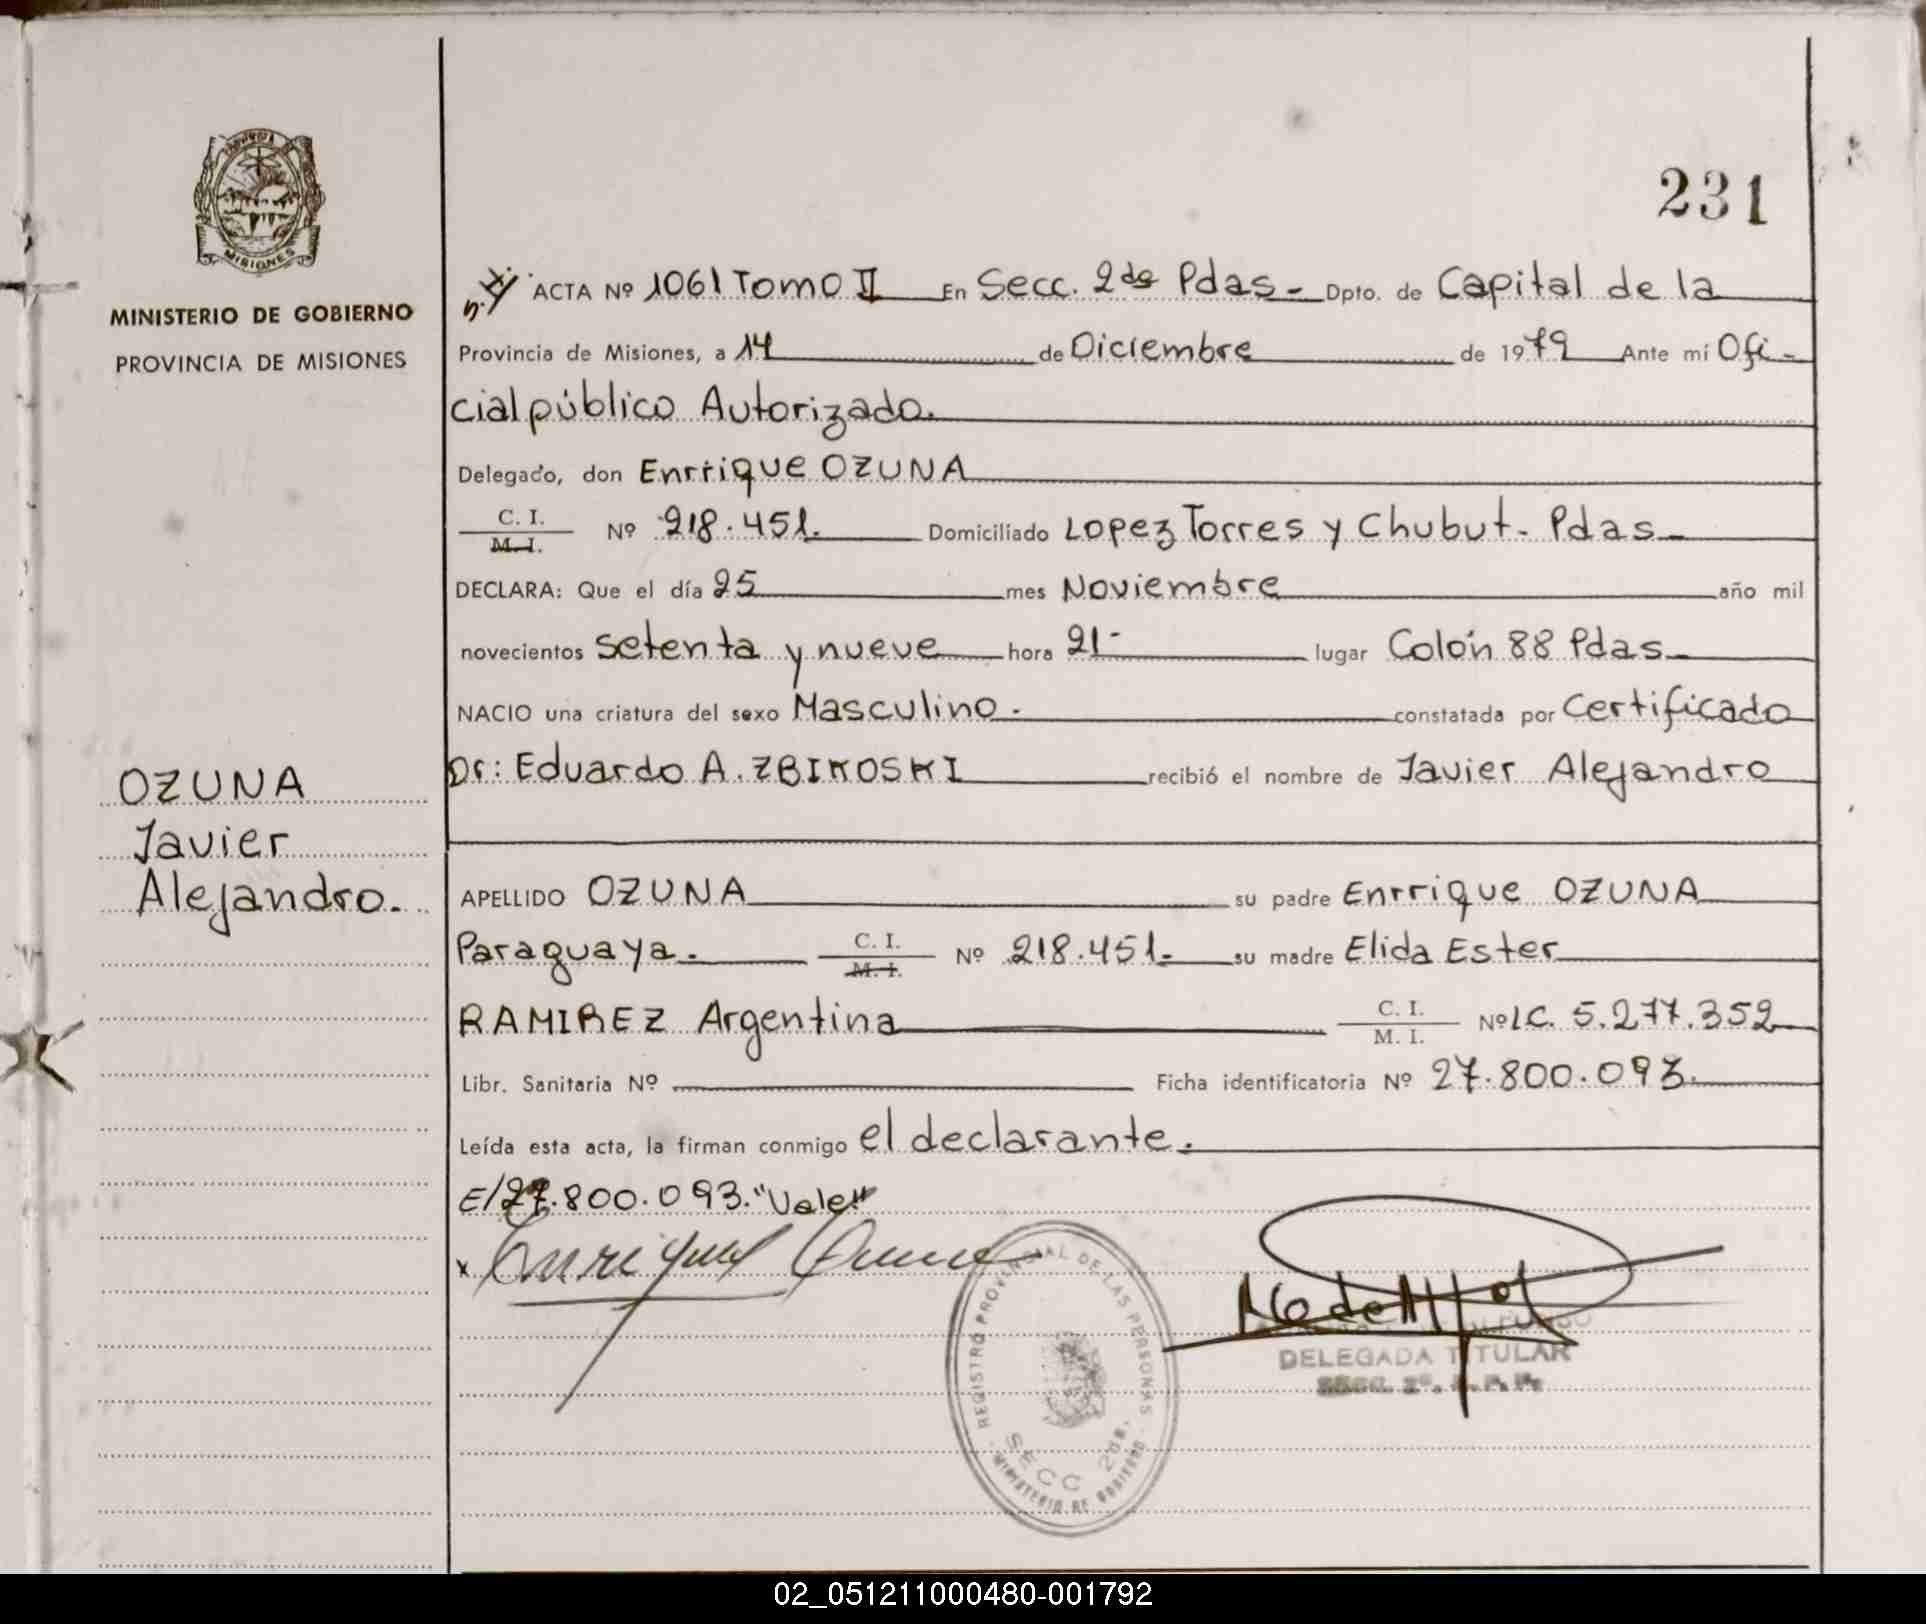 231
PROVINCIA
MISIONES
MINISTERIO DE GOBIERNO
PROVINCIA DE MISIONES
OZUNA
Javier
Alejandro.
ACTA Nº 1061 Tomo II En Secc. 2da Pdas- Dpto. de Capital de la
Provincia de Misiones, a 14 de Diciembre de 1979 Ante mí Ofi-
cial público Autorizado.
Delegado, don Enrrique OZUNA
C. I.
M. I. Nº 218.451. Domiciliado Lopez Torres y Chubut- Pdas-
DECLARA: Que el día 25 mes Noviembre año mil
novecientos setenta y nueve hora 21- lugar Colón 88 Pdas-
NACIO una criatura del sexo Masculino. constatada por Certificado
Dr: Eduardo A. ZBIKOSKI recibió el nombre de Javier Alejandro
APELLIDO OZUNA su padre Enrrique OZUNA
Paraguaya. C. I.
M. I. Nº 218.451- su madre Elida Ester
RAMIREZ Argentina C. I.
M. I. Nº LC. 5.277.352
Libr. Sanitaria Nº Ficha identificatoria Nº 27.800.093.
Leída esta acta, la firman conmigo el declarante.
E/27.800.093."Vale"
x Enrrique Ozuna
REGISTRO PROVINCIAL DE LAS PERSONAS
SECC 2da.
MINISTERIO DE GOBIERNO
DELEGADA TITULAR
02_051211000480-001792